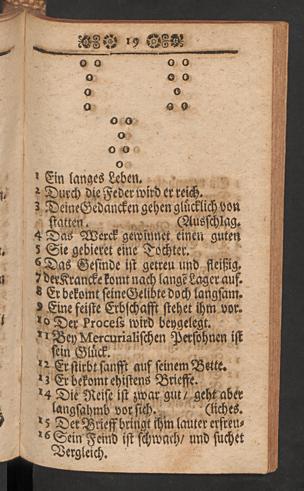 19
1 Ein langes Leben.
2 Durch die Feder wird er reich.
3 Deine Gedancken gehen glücklich von
statten. (Ausschlag.
4 Das Werck gewinnet einen guten
5 Sie gebieret eine Tochter.
6 Das Gesinde ist getreu und fleißig.
7 der Krancke komt nach langē Lager auf.
8 Er bekomt seine Gelibte doch langsam.
9 Eine feiste Erbschafft stehet ihm vor.
10 Der Process wird beygelegt.
11 Bey Mercurialischen Persohnen ist
sein Glück.
12 Er stirbt sanfft auf seinem Bette.
13 Er bekomt ehistens Brieffe.
14 Die Reise ist zwar gut / geht aber
langsahmb vor sich. (liches.
15 Der Brieff bringt ihm lauter erfreu-
16 Sein Feind ist schwach / und suchet
Vergleich.